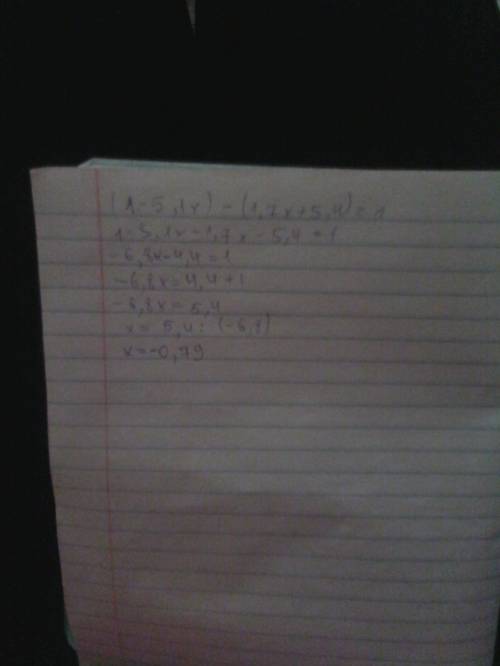 (1-5,1x)-(1,7x+5,4)=1
1-5,1x-1,7x-5,4=1
-6,8x-4,4=1
-6,8x=4,4+1
-6,8x=5,4
x=5,4:(-6,8)
x=-0,79